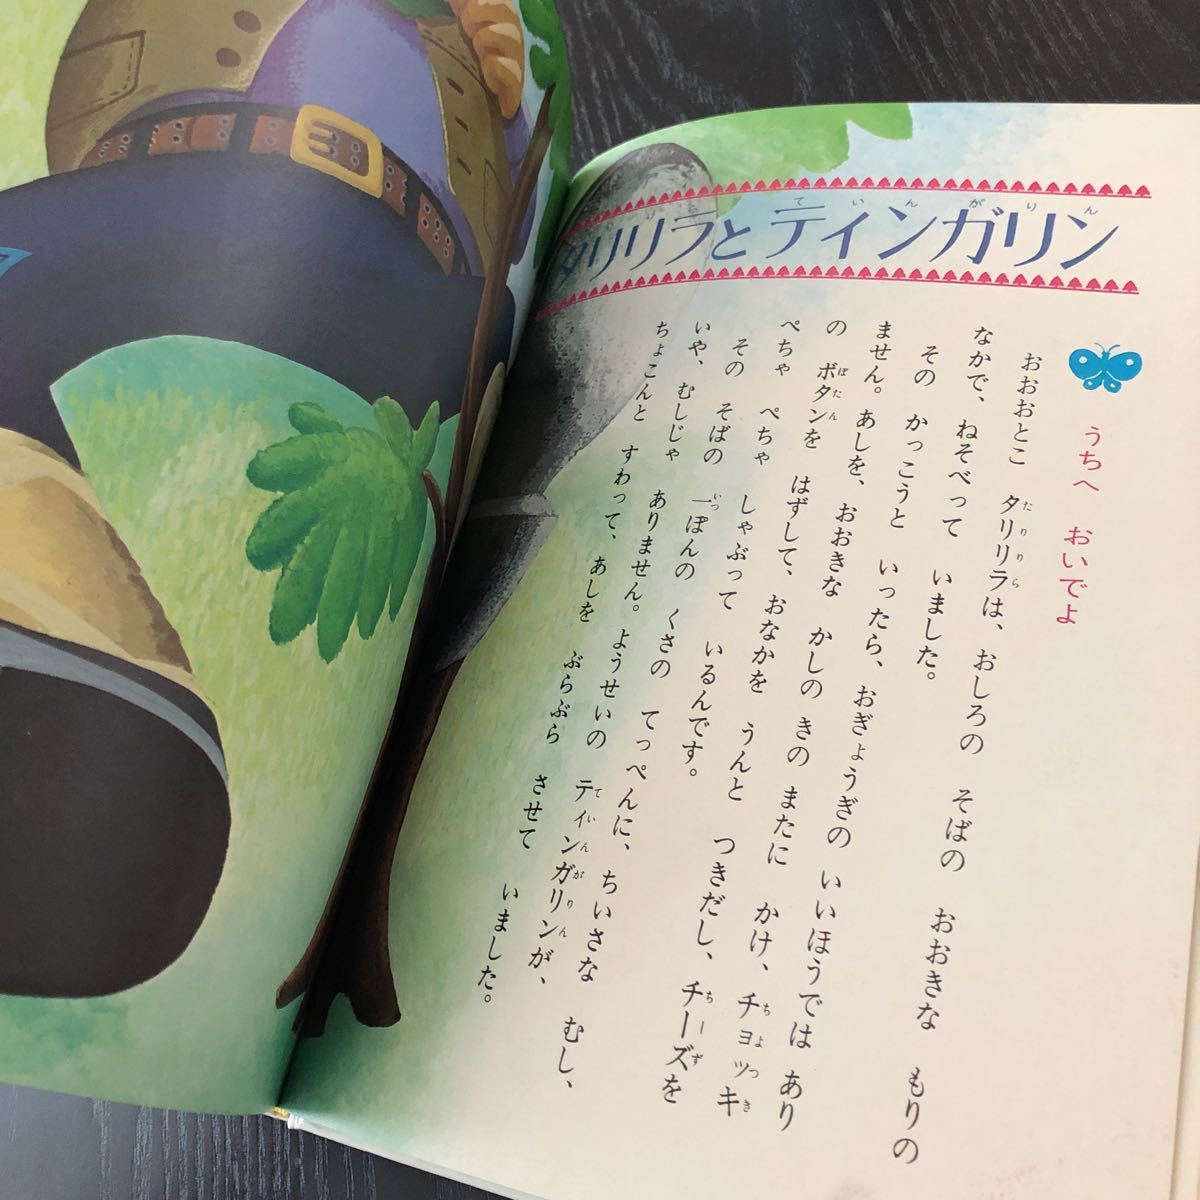 タリリラとティンガリン
うちへ おいでよ
おおおとこ タリリラは、おしろの そばの おおきな もりの
なかで、ねそべって いました。
その かっこうと いったら、おぎょうぎの いいほうでは あり
ません。あしを、おおきな かしの きの またに かけ、チョッキ
の ボタンを はずして、おなかを うんと つきだし、チーズを
ぺちゃ ぺちゃ しゃぶって いるんです。
その そばの 一ぽんの くさの てっぺんに、ちいさな むし、
いや、むしじゃ ありません。ようせいの ティンガリンが、
ちょこんと すわって、あしを ぶらぶら させて いました。